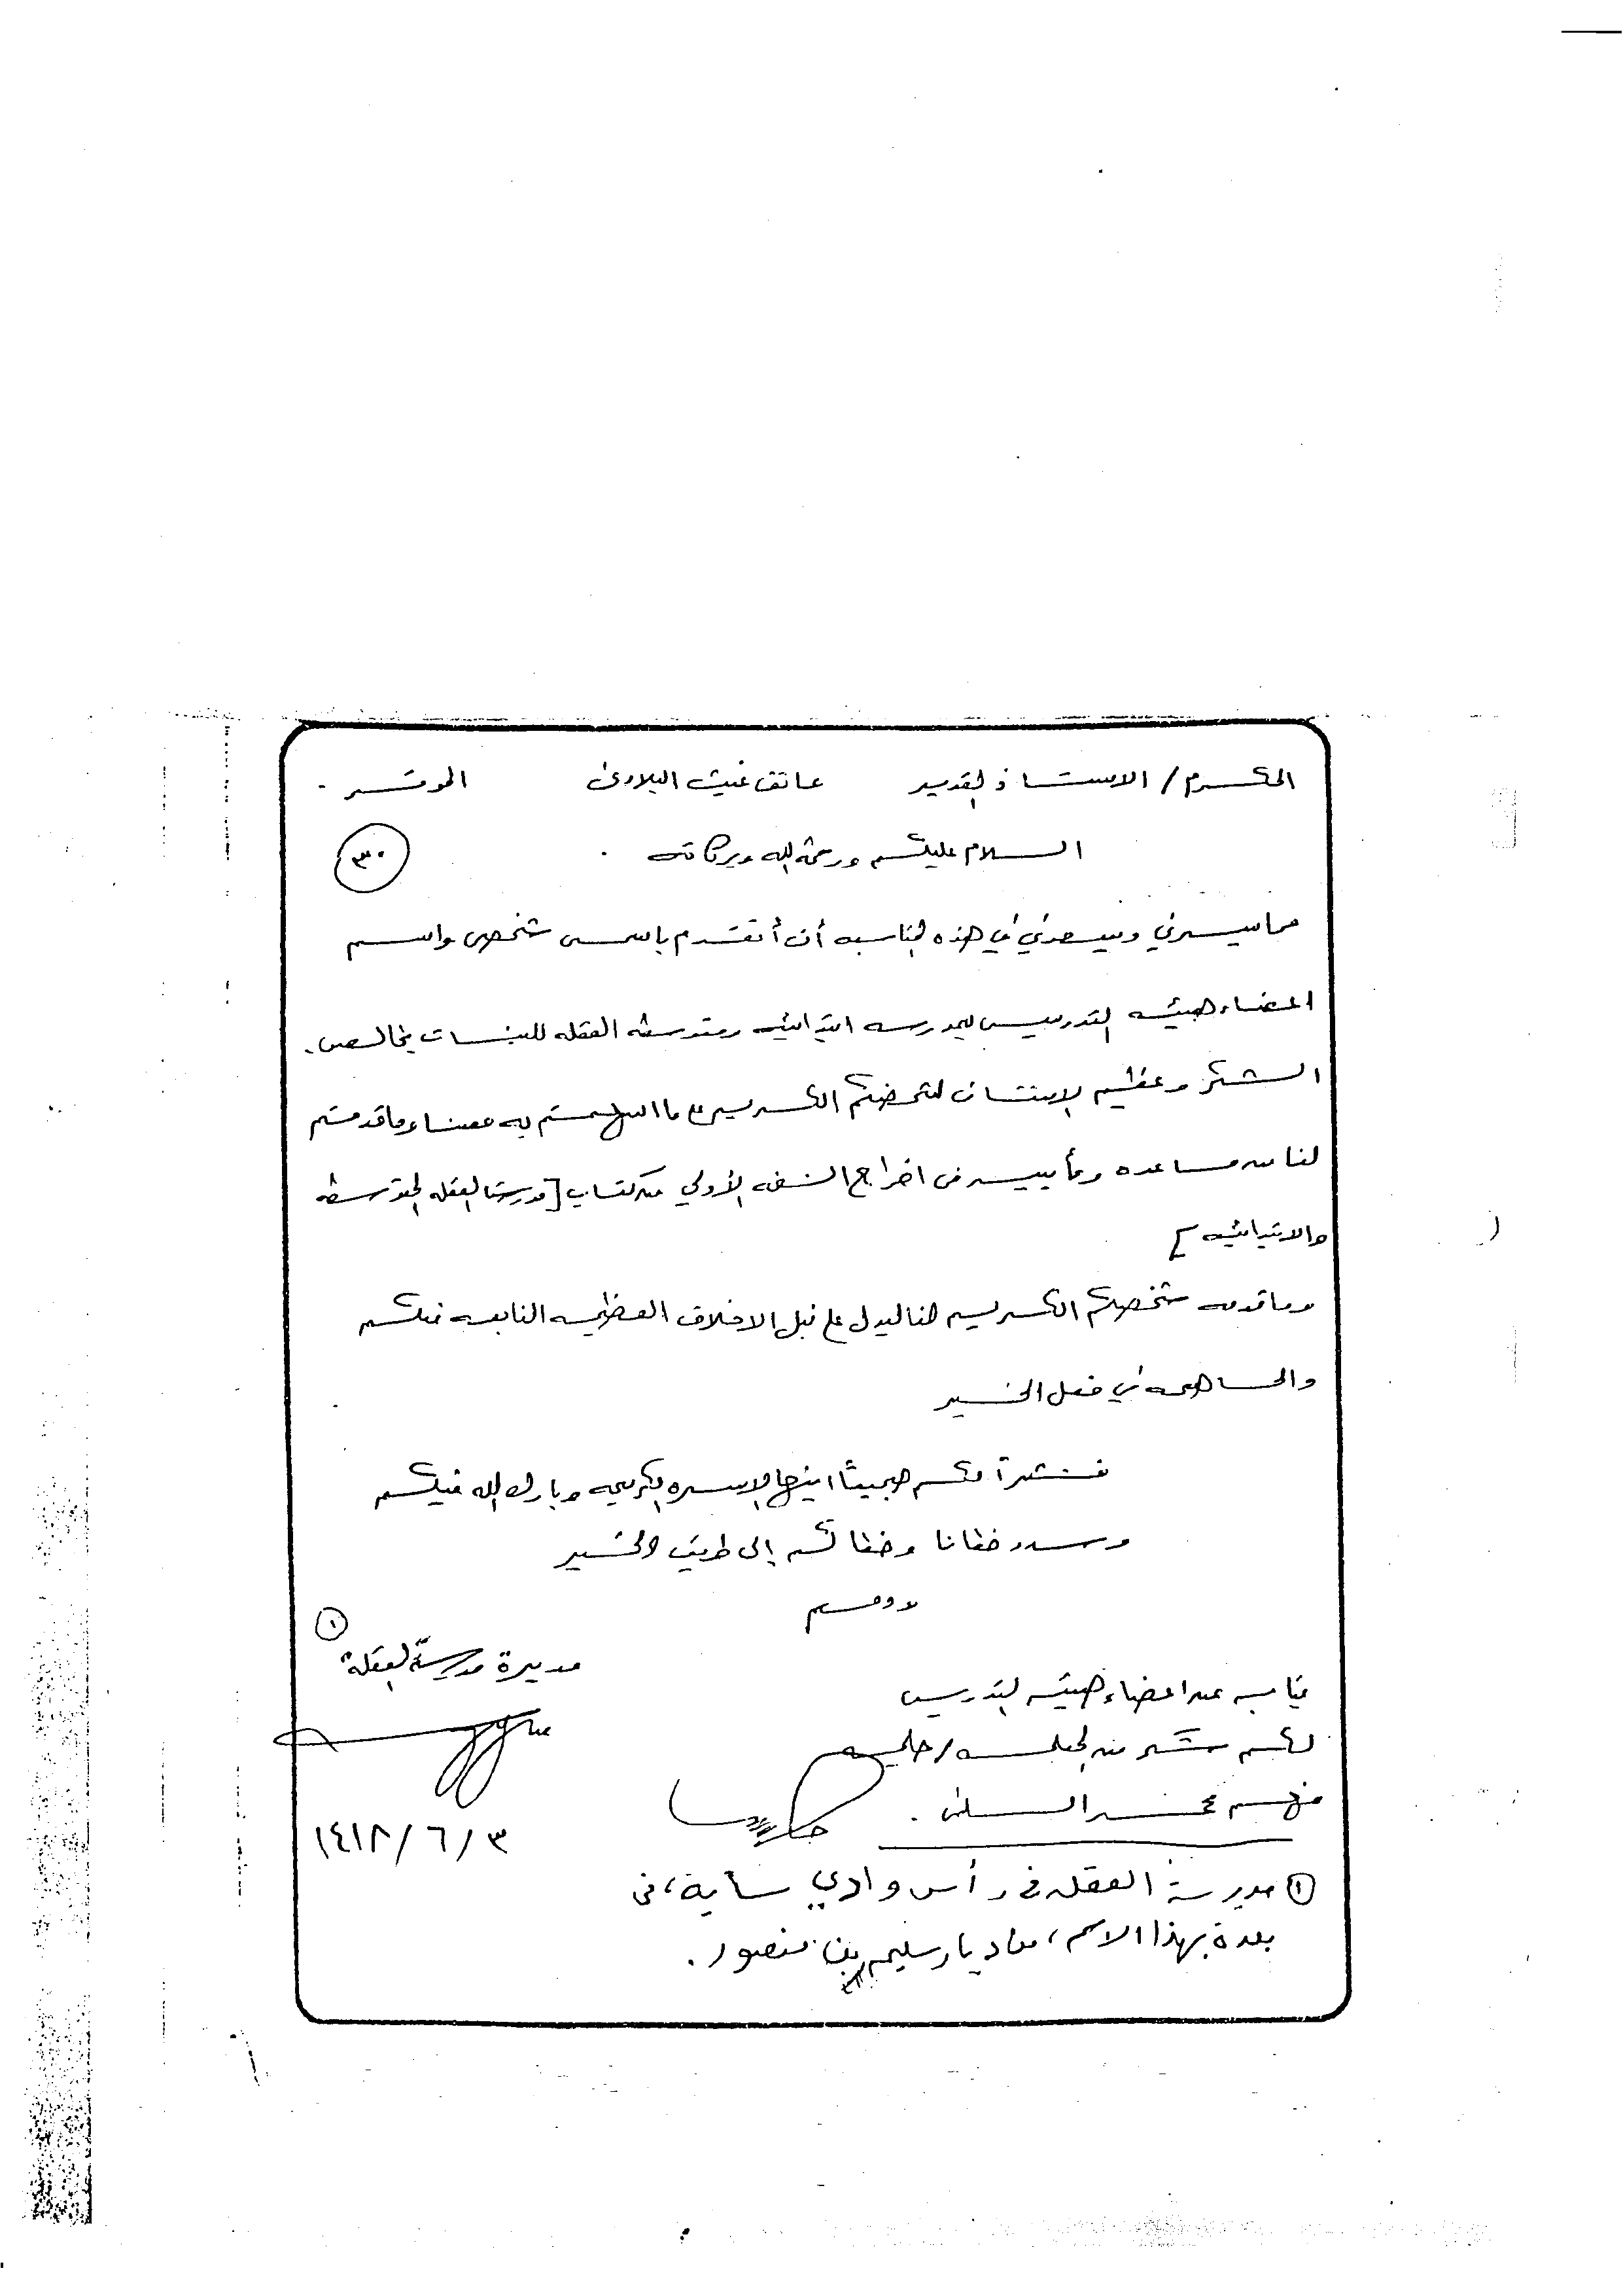 المكرم / الاستاذ القدير عاتق غيث البلادي الموقر .
السلام عليكم ورحمة الله وبركاته .
٣٠
مما يسرني ويسعدني في هذه المناسبه أن أتقدم باسمى شخصى واسم
اعضاء هيئه التدريس بمدرسه ابتدائيه ومتوسطه العقله للبنات بخالص .
الشكر وعظيم الامتنان لشخصكم الكريم على ما اسهمتم به معنا وما قدمتم
لنا من مساعده وتأييد فى اخراج النسخه الأولي من كتاب [ مدرسة العقله المتوسطه
والابتدائيه ]
وما قدمه شخصكم الكريم لنا ليدل على نبل الاخلاق العظيمه النابعه منكم
والمساهمه في فعل الخير
فشكراً لكم جميعاً ايتها الاسره الكريمه وبارك الله فيكم
وسدد خطانا وخطاكم إلى طريق الخير
ودمتم
١
مديرة مدرسة العقلة
نيابه عن اعضاء هيئه التدريس
حليمه
السلمى .
١٤١٨/٦/٣
١ مدرسة العقله في رأس وادي ساية، فى
بلدة بهذا الاسم، من ديار سليم بن منصور .